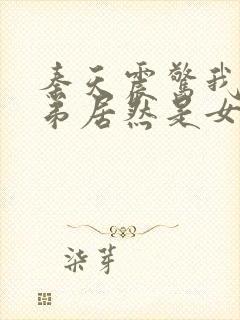 秦天震惊我
弟居然是女
柒芽